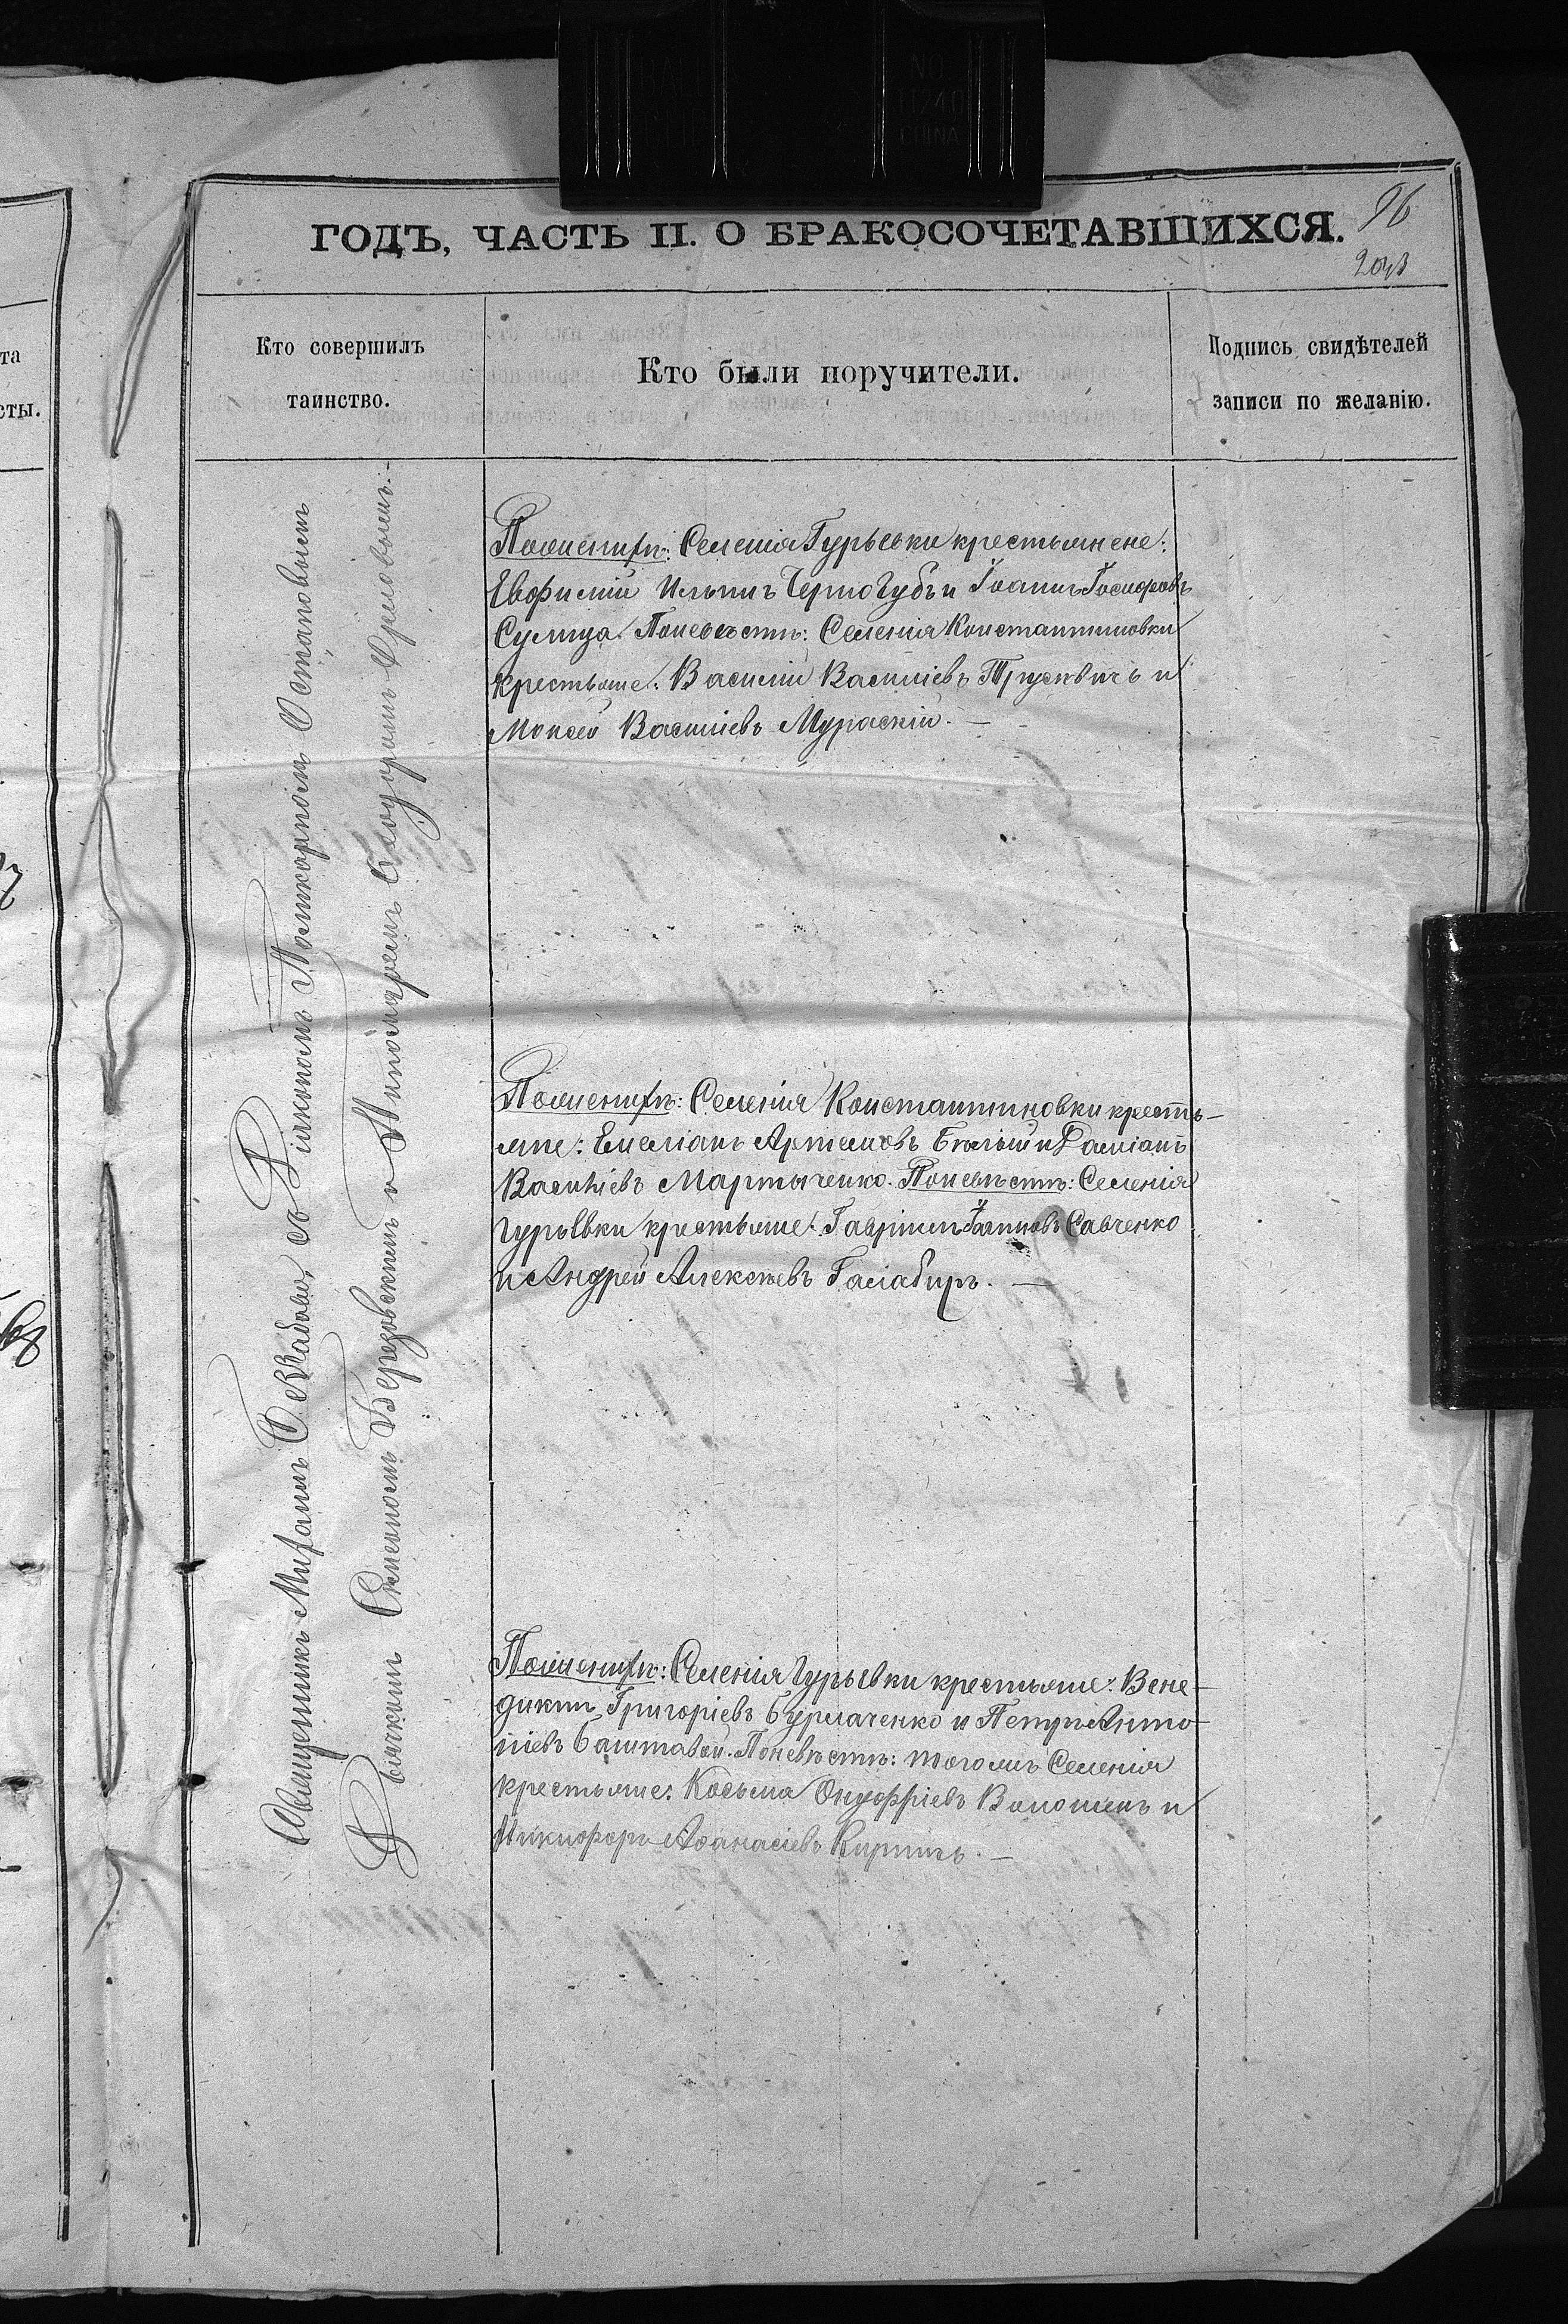 ГОДЪ, ЧАСТЬ II. О БРАКОСОЧЕТАВШИХСЯ.
96
Кто совершилъ
таинство.
Кто были поручители.
Подпись свидѣтелей
записи по желанію.
та
сты.
Священникъ Михаилъ съ Діакономъ Поликарпомъ Остаповымъ
Дьячкомъ Симеономъ Березовскимъ и Пономаремъ Ѳеодоромъ Орловымъ.
По женихѣ: Селенія Гурьевки крестьянене:
Евфимій Ильинъ Черногубъ и Іоаннъ
Сулица. По невѣстѣ: Селенія Константиновки
крестьяне: Василій Василіевъ Трусквичъ и
Моисей Василіевъ Мураскій. —
По женихѣ: Селенія Константиновки кресть-
яне: Емеліанъ Артемовъ Бѣлый и Даміанъ
Василіевъ Мартыченко. По невѣстѣ: Селенія
Гурьевки крестьяне: Гавріилъ Іоанновъ Савченко
и Андрей Алексѣевъ Галабиръ. —
По женихѣ: Селенія Гурьевки крестьяне: Вене-
диктъ Григоріевъ Бурлаченко и Петръ Анто-
ніевъ Баштавой. По невѣстѣ: того жъ Селенія
крестьяне: Косьма Онуфріевъ Волошинъ и
Никифоръ Аѳанасіевъ Киричъ. —